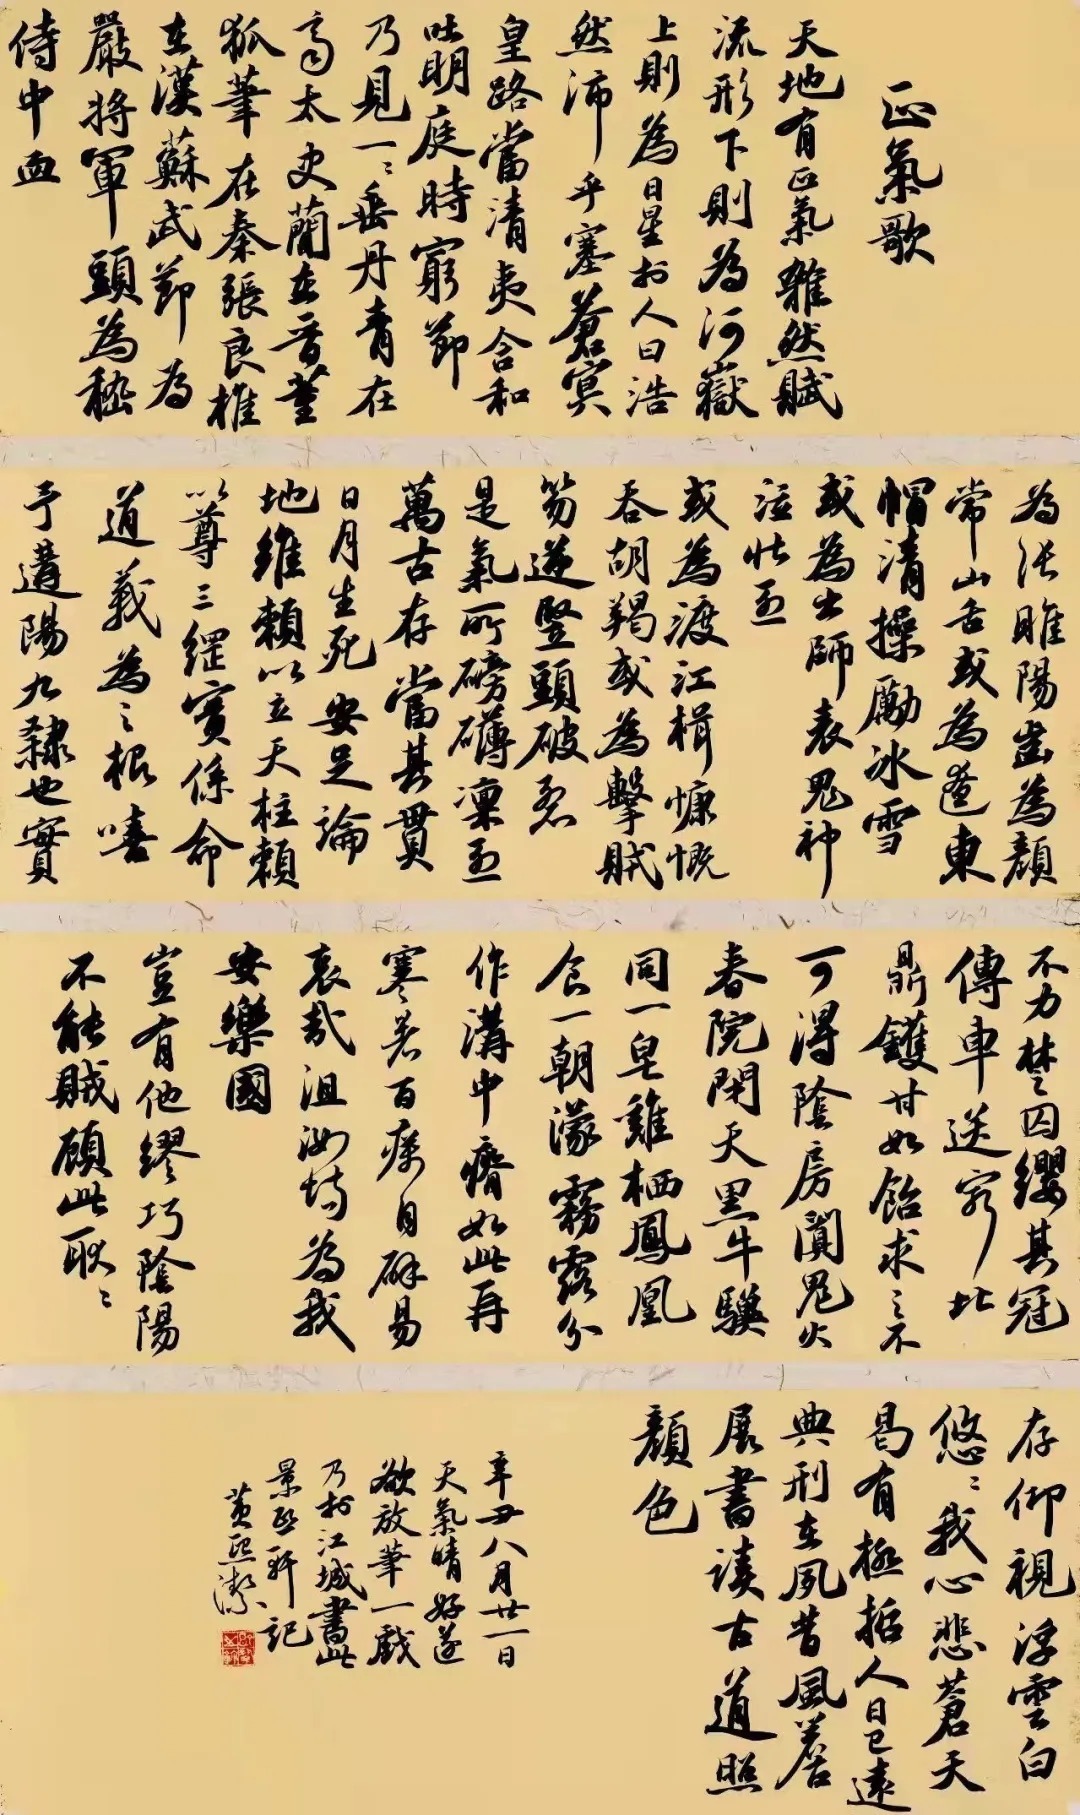 正氣歌
天地有正氣雜然賦
流形下則為河嶽
上則為日星於人曰浩
然沛乎塞蒼冥
皇路當清夷含和
吐明庭時窮節
乃見一〻垂丹青在
齊太史簡在晉董
狐筆在秦張良椎
在漢蘇武節為
嚴將軍頭為嵇
侍中血
為張睢陽齒為顏
常山舌或為遼東
帽清操勵冰雪
或為出師表鬼神
泣壯烈
或為渡江楫慷慨
吞胡羯或為擊賊
笏逆豎頭破裂
是氣所磅礴凜烈
萬古存當其貫
日月生死安足論
地維賴以立天柱賴
以尊三綱實係命
道義為之根嗟
予遘陽九隸也實
不力楚囚纓其冠
傳車送窮北
鼎鑊甘如飴求之不
可得陰房闃鬼火
春院閉天黑牛驥
同一皂雞栖鳳凰
食一朝濛霧露分
作溝中瘠如此再
寒暑百瘝自辟易
哀哉沮洳場為我
安樂國
豈有他繆巧陰陽
不能賊顧此耿〻
存仰視浮雲白
悠〻我心悲蒼天
曷有極哲人日已遠
典刑在夙昔風簷
展書讀古道照
顏色
辛丑八月廿一日
天氣晴好遂
欲放筆一戲
乃於江城書此
景熙軒記
黃熙潔